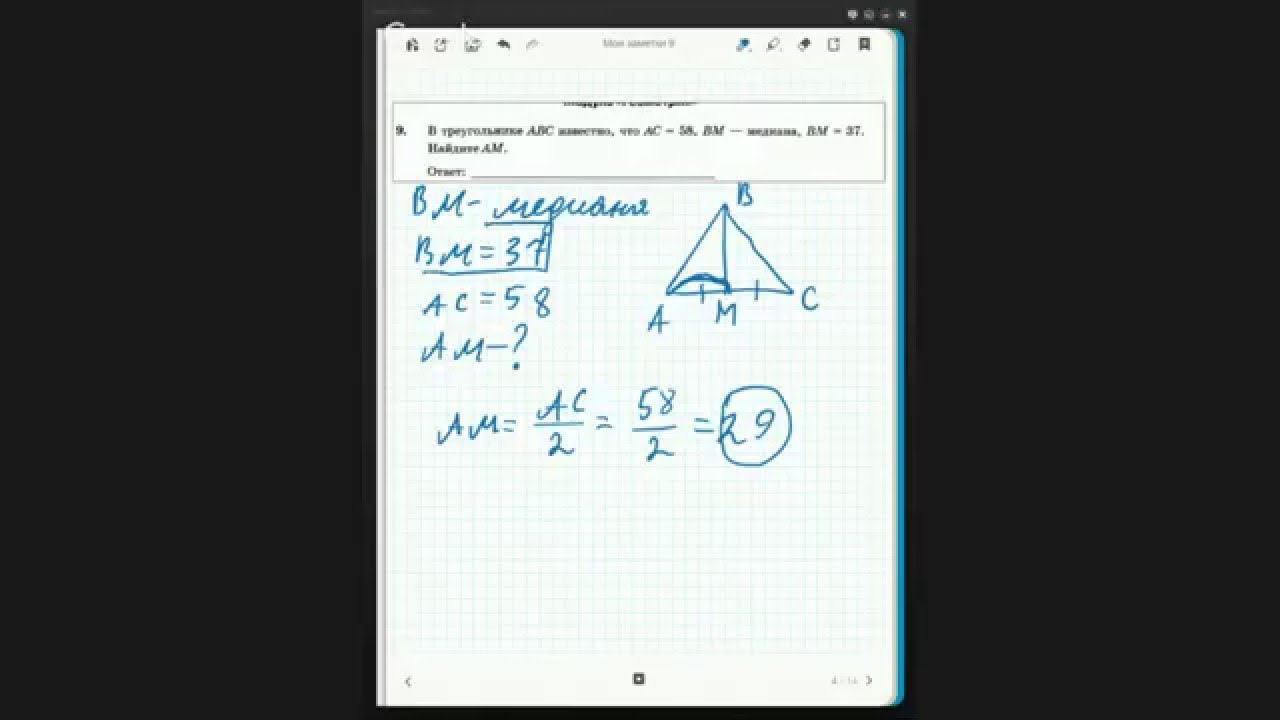 Мои заметки 9
9. В треугольнике ABC известно, что AC = 58, BM — медиана, BM = 37.
Найдите AM.
Ответ:
BM - медиана
BM = 37
AC = 58
AM - ?
B
A
M
C
AM = AC/2 = 58/2 = 29
4 / 14